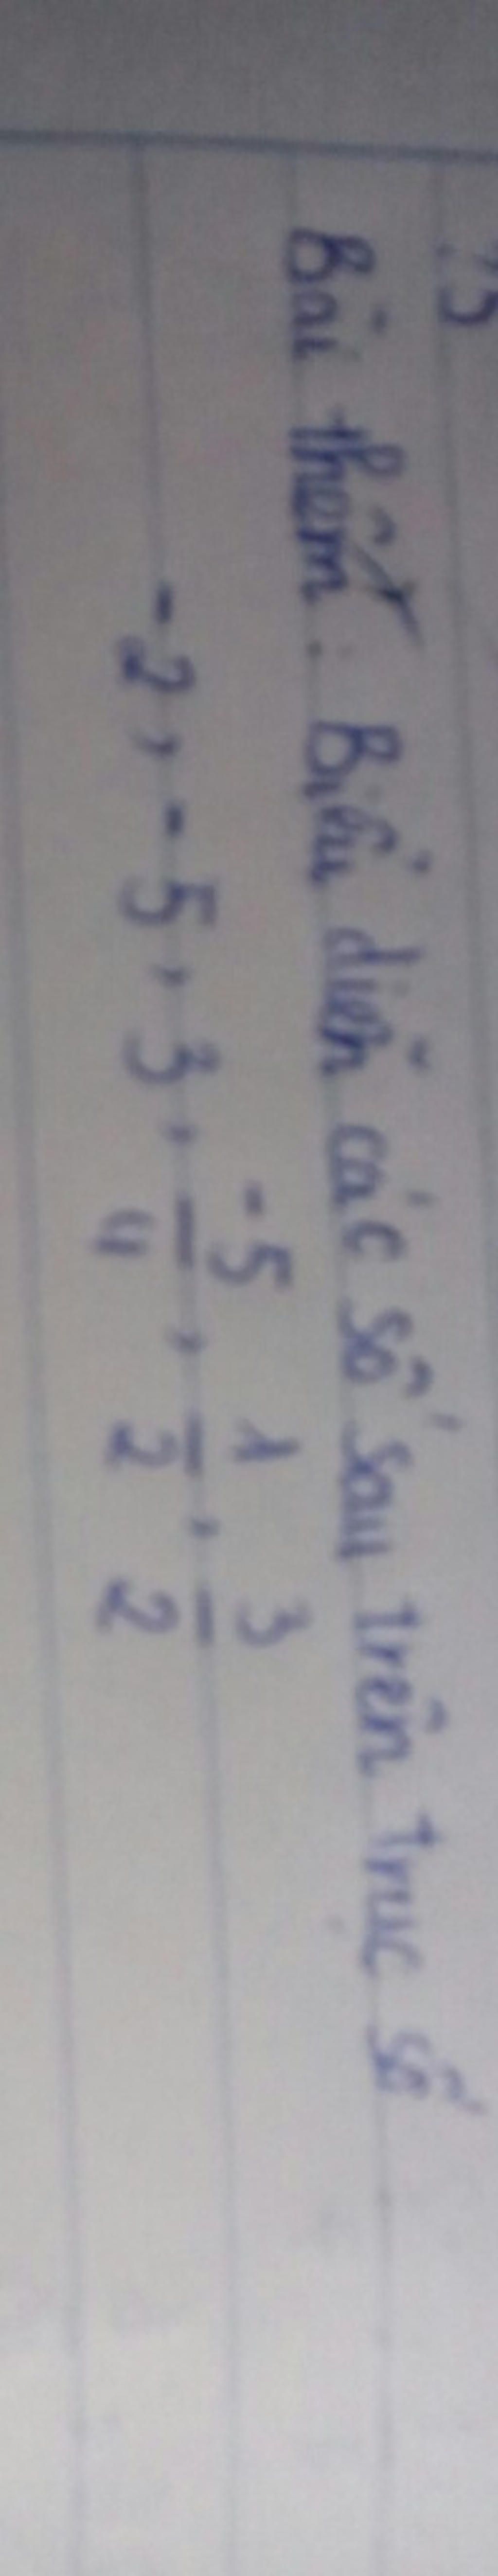 :5
Bài thêm: Biểu diễn các số sau trên trục số
-2, -5, 3, -5/4, 1/2, 3/2